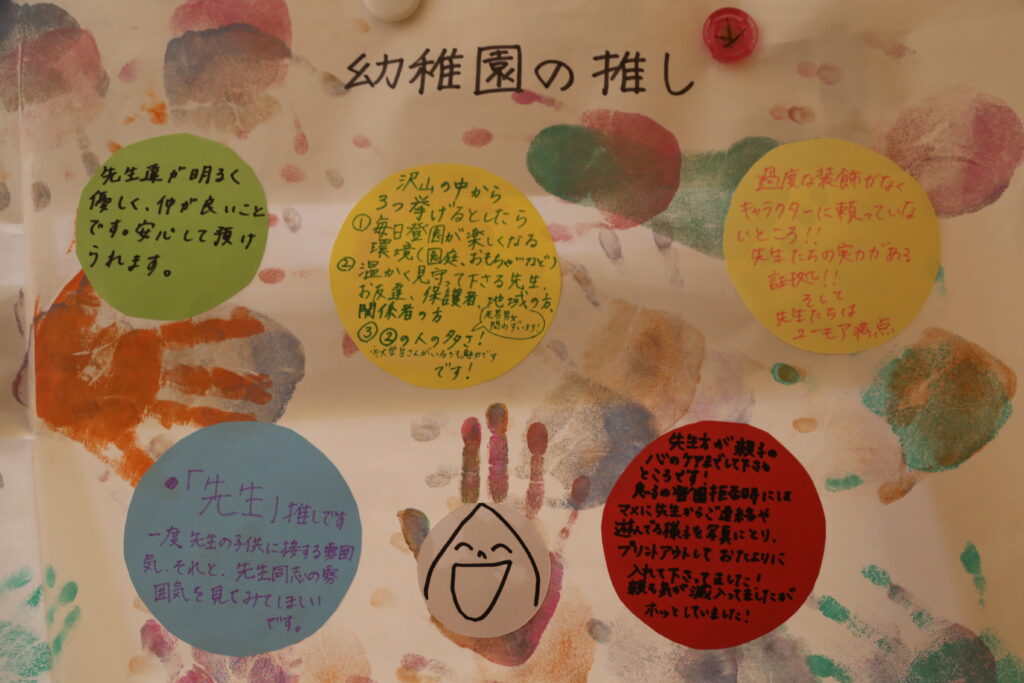 幼稚園の推し
先生達が明るく
優しく、仲が良いこと
です。安心して預け
られます。
沢山の中から
3つ挙げるとしたら
①毎日登園が楽しくなる
環境(園庭、おもちゃなど)
②温かく見守って下さる先生、
お友達、保護者、地域の方、
関係者の方
老若男女
問わずいます!
③②の人の多さ!
※大学生さんがいるのも魅力です
です!
過度な装飾がなく
キャラクターに頼っていな
いところ!!
先生たちの実力がある
証拠!!
そして
先生たちは
ユーモア満点
「先生」推しです
一度先生の子供に接する雰囲
気、それと、先生同志の雰
囲気を見てみてほしい
です。
先生方が親子の
心のケアまでして下さる
ところです!
息子の登園拒否時には
マメに先生からご連絡や
遊んでる様子を写真にとり、
プリントアウトしておたよりに
入れて下さってました!
親も気が滅入ってましたが
ホッとしていました!